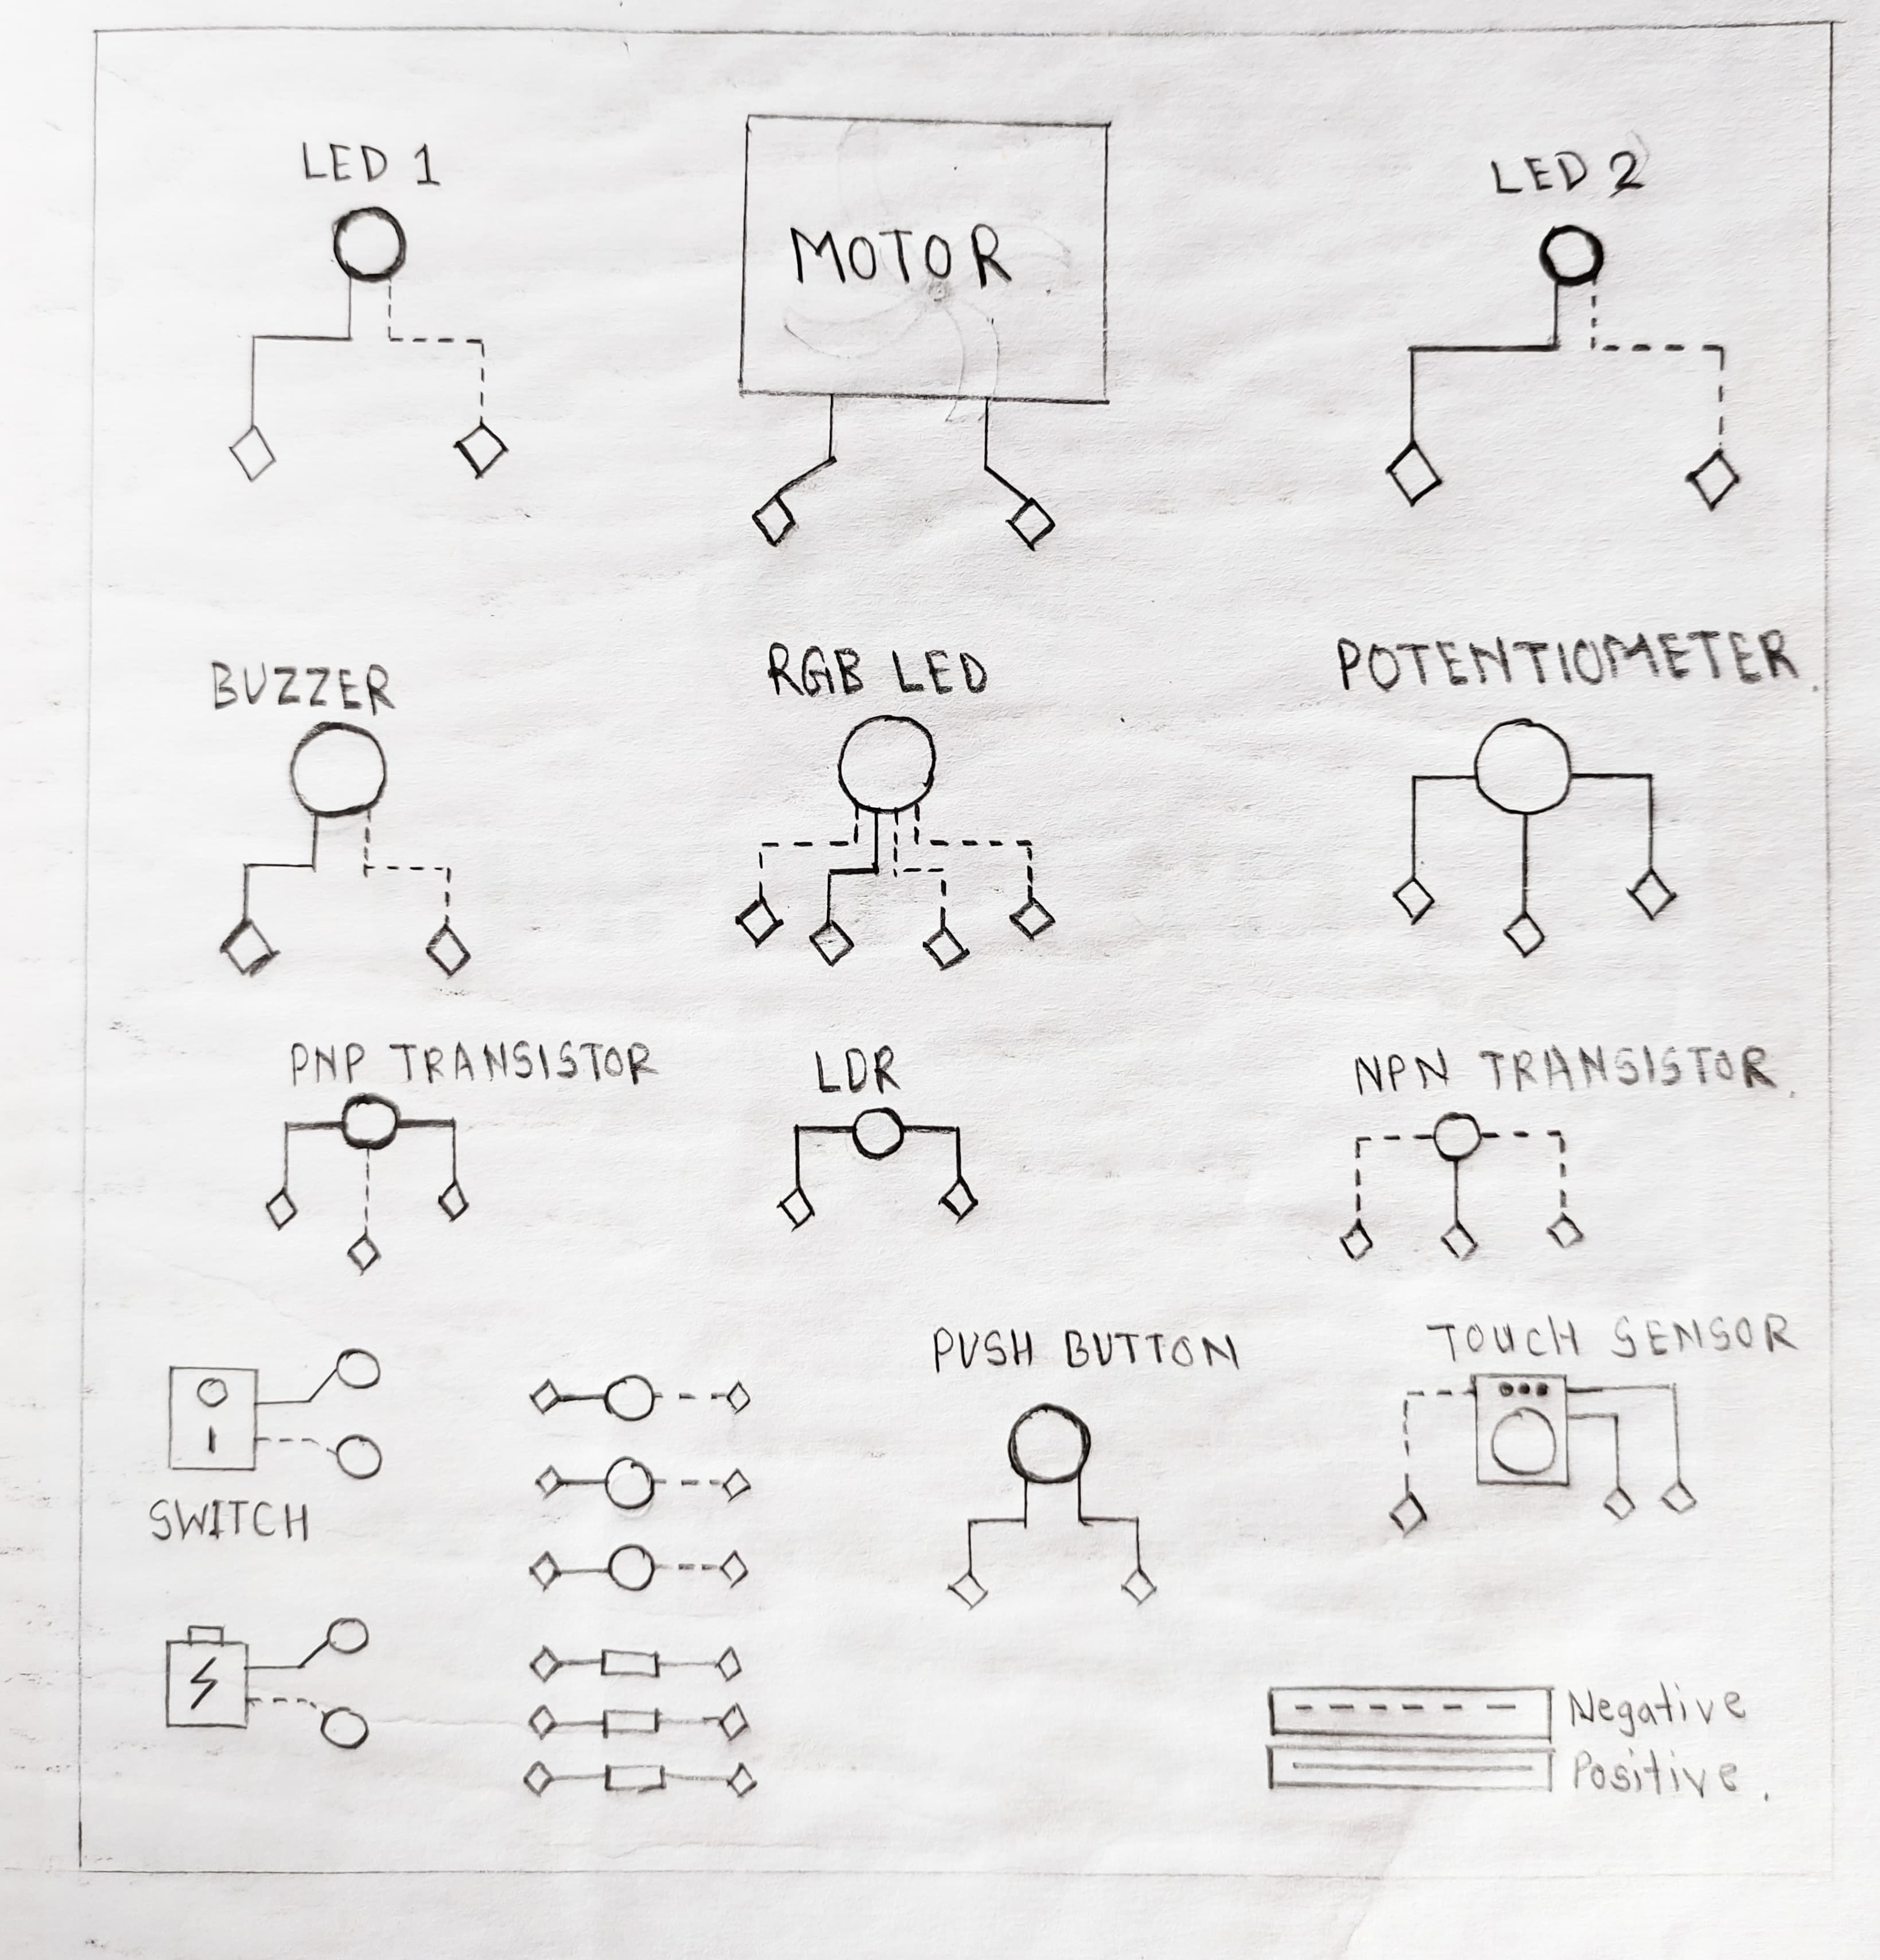 LED 1
MOTOR
LED 2
BUZZER
RGB LED
POTENTIOMETER.
PNP TRANSISTOR
LDR
NPN TRANSISTOR.
PUSH BUTTON
TOUCH SENSOR
SWITCH
Negative
Positive.